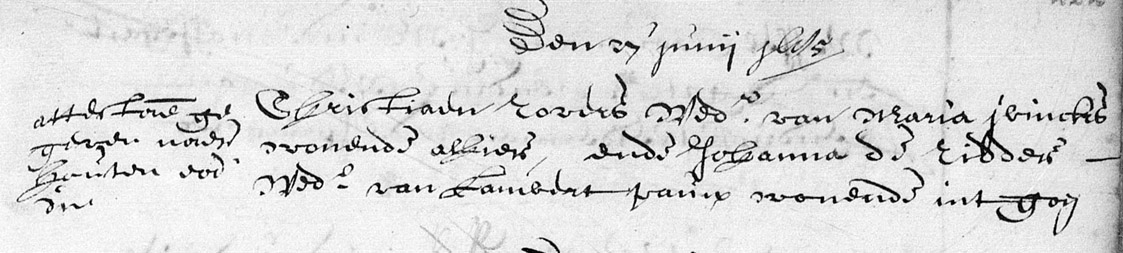 Den 27 junij
attestatie ge
geven naer
houten eod
die
Christiaen Rovers Wedr. van Maria
wonende alhier, ende Johanna de Ridder —
Wede. van Lambert wonende int Goij